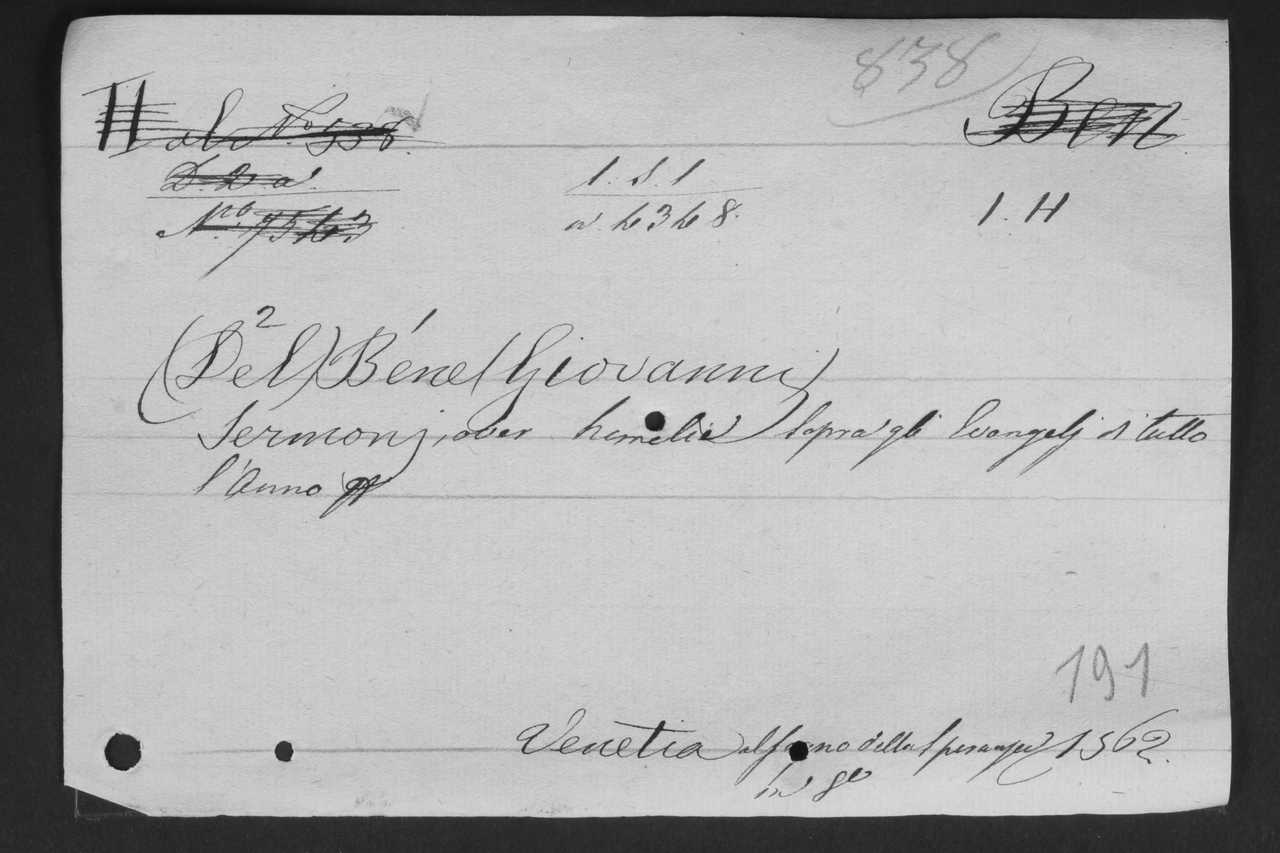 838
Ben
H al No. 538.
D. D. a.
1. S. 1
No. 7563
a. 6368.
1. H
2 1
(Del) Bene (Giovanni)
Sermonj, over homelie sopra gli Evangelj di tutto
l'Anno
191
Venetia al segno della speranza 1562.
in 8o